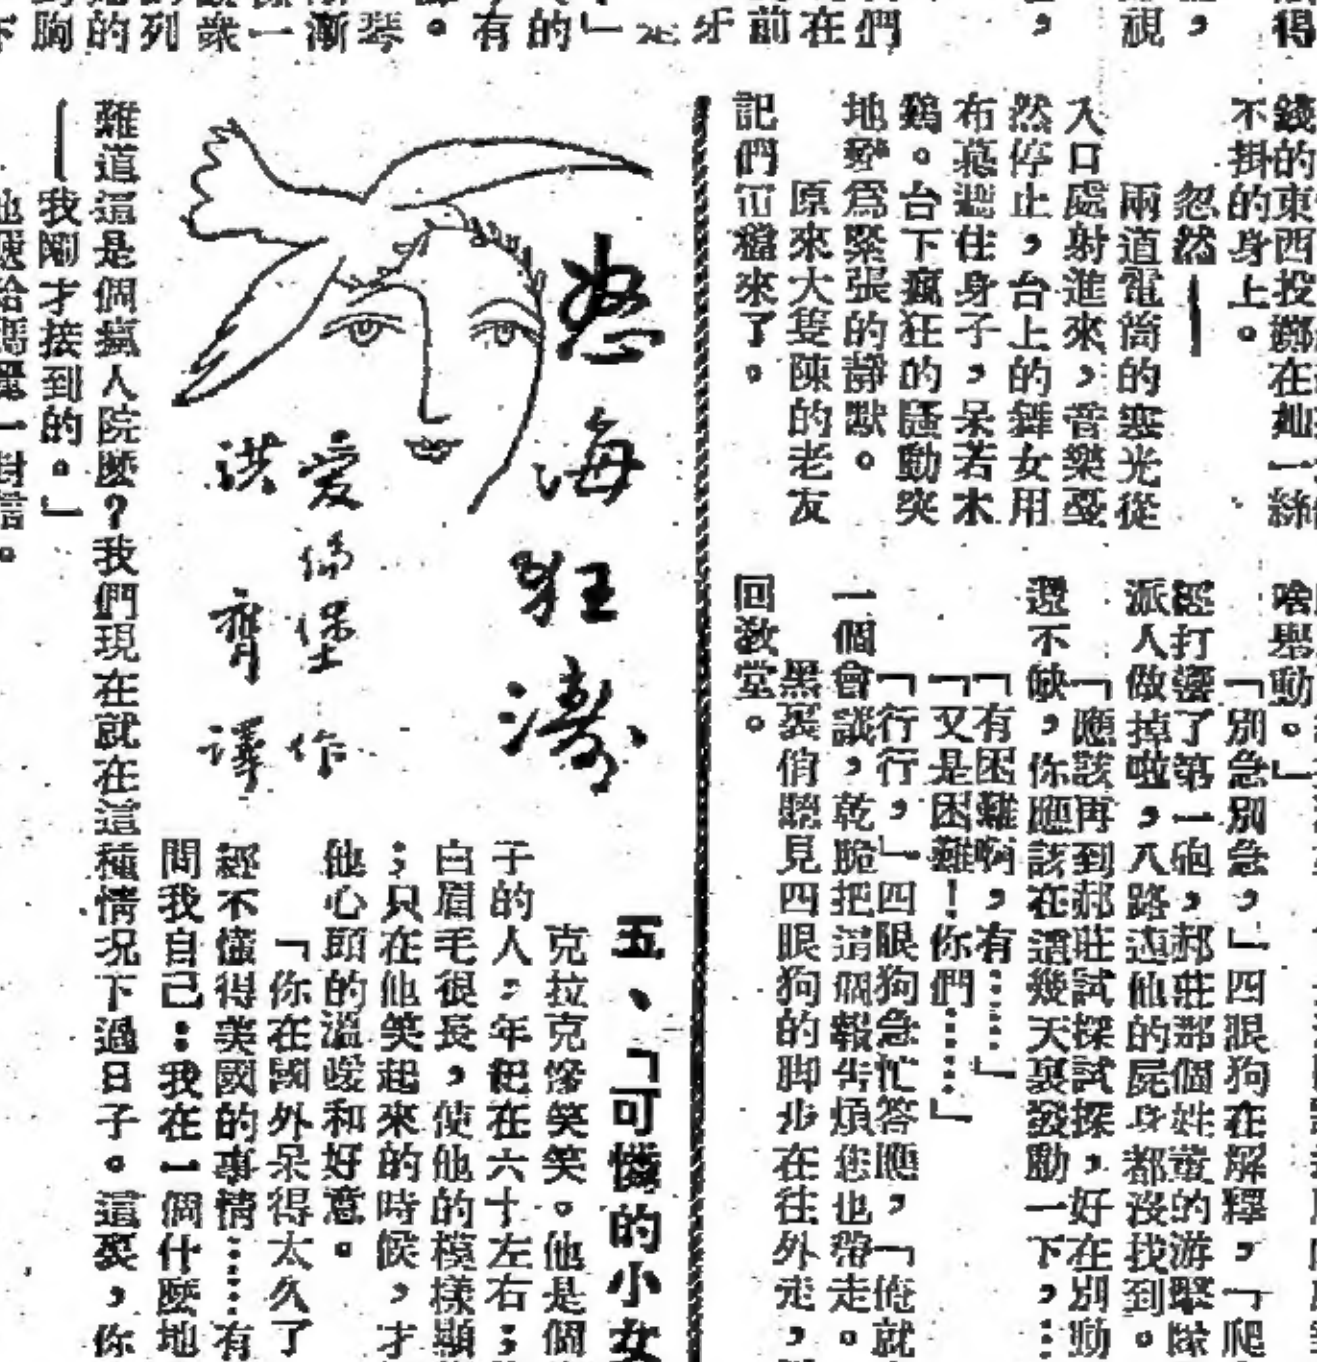 錢的東西投擲在她一絲
不掛的身上。
忽然——
兩道電筒的寒光從
入口處射進來，音樂戛
然停止，台上的舞女用
布幕遮住身子，呆若木
鷄。台下瘋狂的騷動突
地變爲緊張的靜默。
原來大隻陳的老友
記們冚檔來了。
啥舉動。」
「別急別急，」四眼狗在解釋，「爬
經打響了第一砲，郝莊那個姓董的游擊隊
派人做掉啦，八路連他的屍身都沒找到。
「應該再到郝莊試探試探，好在別動
還不缺，你應該在這幾天裏發動一下，
「有困難啊，有……」
「又是困難！你們……」
「行行，」四眼狗急忙答應，「俺就
一個會議，乾脆把這個報告煩您也帶走。
黑裏俏聽見四眼狗的脚步在往外走，
回敎堂。
怒海狂濤
愛倫堡作
洪齊譯
五、「可憐的小女
克拉克慘笑笑。他是個
子的人，年紀在六十左右；
白眉毛很長，使他的模樣顯
；只在他笑起來的時候，才
他心頭的溫暖和好意。
「你在國外呆得太久了
經不懂得美國的事情……有
問我自己：我在一個什麽地
難道這是個瘋人院麽？我們現在就在這種情况下過日子。這裏，你
——我剛才接到的。」
他遞給馬羅一封信。